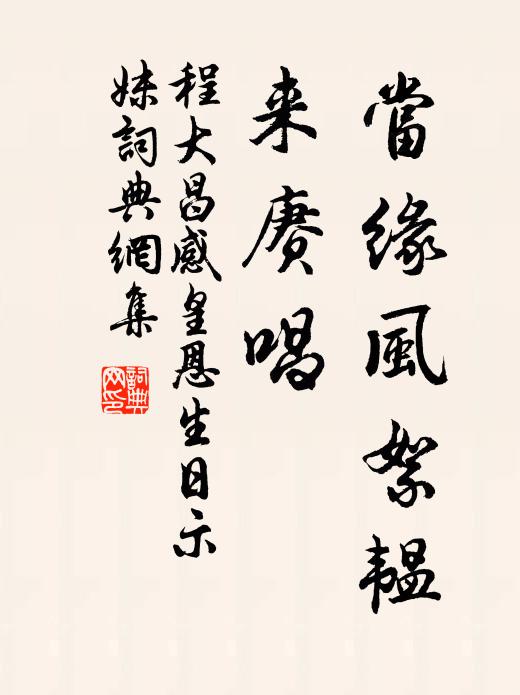 當緣風絮韞
来赓唱
程大昌感皇恩生日示
妹詞典網集
詞典
网印